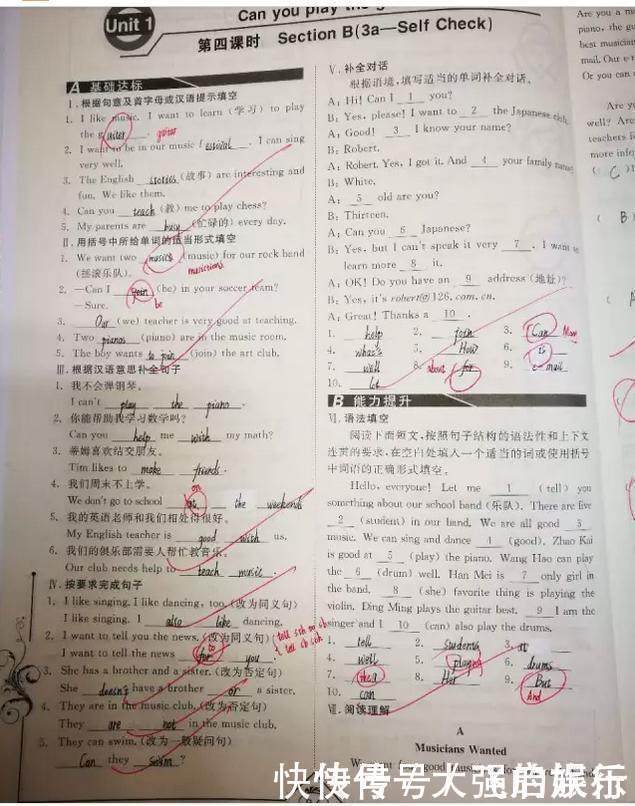 Unit 1
Can you play the
第四课时 Section B(3a—Self Check)
A 基础达标
Ⅰ. 根据句意及首字母或汉语提示填空
1. I like music. I want to learn (学习) to play
the guitar. guitar
2. I want to be in our music festival. I can sing
very well.
3. The English stories (故事) are interesting and
fun. We like them.
4. Can you teach (教) me to play chess?
5. My parents are busy (忙碌的) every day.
Ⅱ. 用括号中所给单词的适当形式填空
1. We want two musics (music) for our rock band
(摇滚乐队). musicians
2. —Can I join (be) in your soccer team?
—Sure. be
3. Our (we) teacher is very good at teaching.
4. Two pianos (piano) are in the music room.
5. The boy wants to join (join) the art club.
Ⅲ. 根据汉语意思补全句子
1. 我不会弹钢琴。
I can't play the piano.
2. 你能帮助我学习数学吗?
Can you help me with my math?
3. 蒂姆喜欢结交朋友。
Tim likes to make friends.
4. 我们周末不上学。
on
We don't go to school the weekends
5. 我的英语老师和我们相处得很好。
My English teacher is good with us.
6. 我们的俱乐部需要人帮忙教音乐。
Our club needs help to teach music.
Ⅳ. 按要求完成句子
1. I like singing. I like dancing, too. (改为同义句)
I like singing. I also like dancing.
2. I want to tell you the news. (改为同义句)
I want to tell the news for you.
to
3. She has a brother and a sister. (改为否定句)
She doesn't have a brother or a sister.
4. They are in the music club. (改为否定句)
They are not in the music club.
5. They can swim. (改为一般疑问句)
Can they swim?
Ⅴ. 补全对话
根据语境,填写适当的单词补全对话。
A: Hi! Can I 1 you?
B: Yes, please! I want to 2 the Japanese club.
A: Good! 3 I know your name?
B: Robert.
A: Robert. Yes, I got it. And 4 your family name
B: White.
A: 5 old are you?
B: Thirteen.
A: Can you 6 Japanese?
B: Yes, but I can't speak it very 7. I want to
learn more 8 it.
A: OK! Do you have an 9 address (地址)?
B: Yes, it's robert@126.com.cn.
A: Great! Thanks a 10.
1. help 2. join 3. Can May
4. what's 5. How 6.
7. well 8. about for 9. e-mail
10. lot
B 能力提升
Ⅵ. 语法填空
阅读下面短文,按照句子结构的语法性和上下文
连贯的要求,在空白处填入一个适当的词或使用括号
中词语的正确形式填空。
Hello, everyone! Let me 1 (tell) you
something about our school band (乐队). There are five
2 (student) in our band. We are all good 3
music. We can sing and dance 4 (good). Zhao Kai
is good at 5 (play) the piano. Wang Hao can play
the 6 (drum) well. Han Mei is 7 only girl in
the band. 8 (she) favorite thing is playing the
violin. Ding Ming plays the guitar best. 9 I am the
singer and I 10 (can) also play the drums.
1. tell 2. students 3. at
4. well 5. 6. drums
7. the 8. Her 9. But
10. can And
Ⅶ. 阅读理解
A
Musicians Wanted
Are you a m
piano, the gu
best musician
Or you can
Are y
well? Are
teachers f
more info
( C )1
( B )